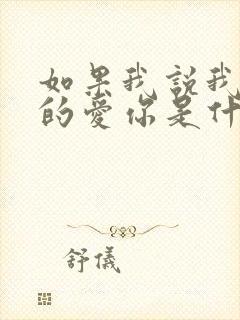 如果我説我
的愛你是什
舒儀